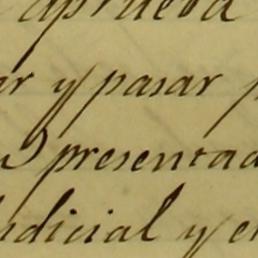 aprueva
ar y pasar p
presentad
udicial y en